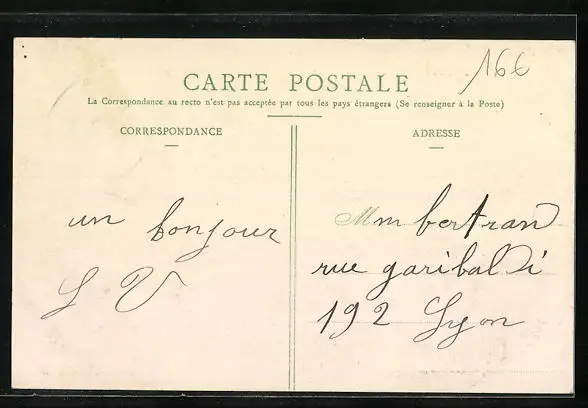 16€
CARTE POSTALE
La Correspondance au recto n'est pas acceptée par tous les pays étrangers (Se renseigner à la Poste)
CORRESPONDANCE
un bonjour
L V
ADRESSE
Mm bertran
rue garibaldi
192 Lyon